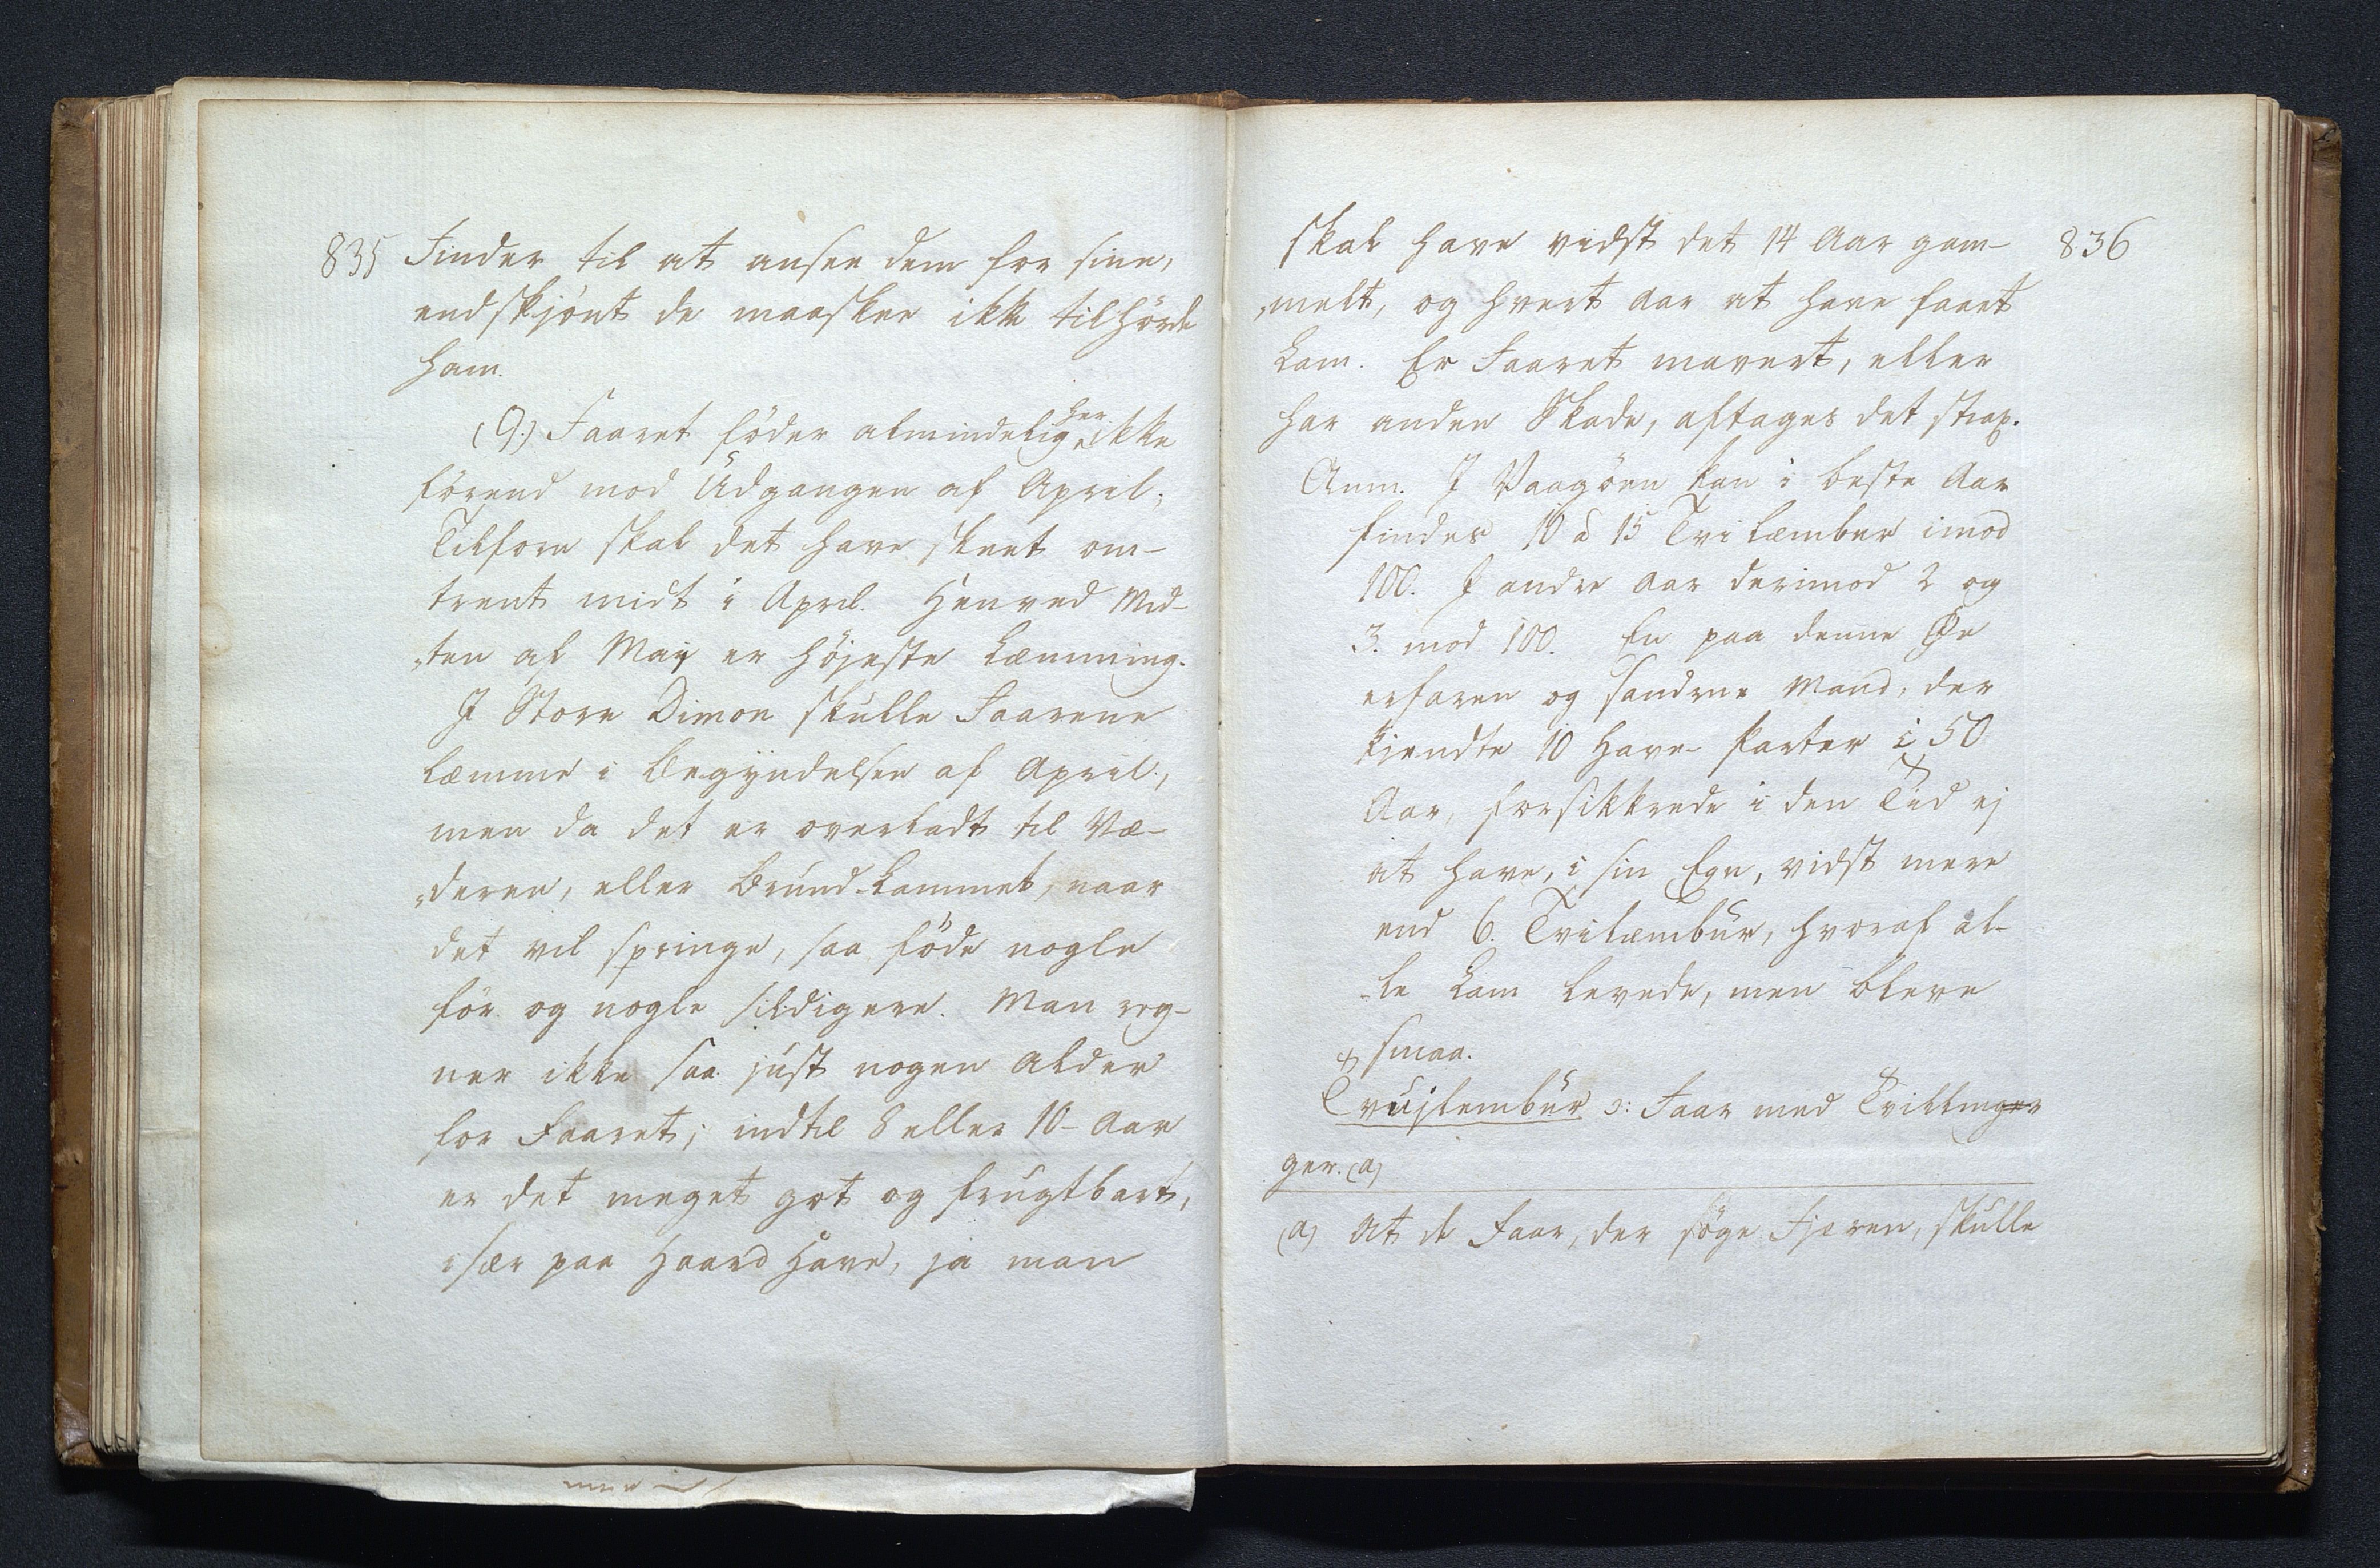 835 finder til at ansee dem for sine,
endskjönt de maaskee ikke tilhörde
ham.
(9.) Faaret föder almindeligher ikke
förend mod Udgangen af April;
Tilforn skal det have skeet om-
trent midt i April. Henved Mid-
„ten af Maij er höjeste Læmning.
I Store Dimon skulle Faarene
læmme i Begyndelsen af April,
men da det er overladt til Væ-
„deren, eller Brund-Lammet, naar
det vil springe, saa föde nogle
för og nogle sildigere. Man reg-
ner ikke saa just nogen Alder
for Faaret; indtil 8 eller 10 Aar
er det meget got og frugtbart,
især paa Haard Have, ja man
skal have vidst det 14 Aar gam- 836
„melt, og hvert Aar at have faaet
Lam. Er Faaret mavert, eller
har anden Skade, aftages det strax.
Anm. I Vaagöen kan i beste Aar
findes 10 à 15 Tvilæmbur imod
100. I andre Aar derimod 2 og
3. mod 100. En paa denne Øe
erfaren og sandrue Mand, der
kjendte 10 Have-Parter i 50
Aar, forsikkrede i den Tid ej
at have, i sin Egn, vidst mere
end 6. Tvilæmbur, hvoraf al-
-le Lam levede, men bleve
smaa.
Tvujlembur ɔ: Faar med Tvillinger
ger. (a)
(a) At de Faar, der söge Fjæren, skulle